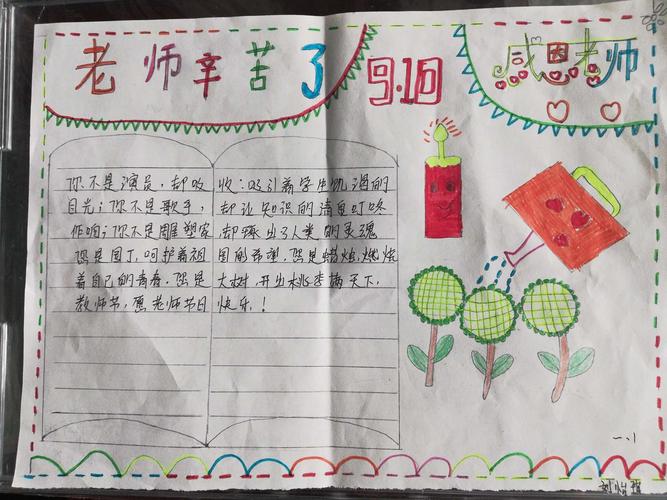 老师辛苦了
9.10
感恩老师
你不是演员,却吸收:吸引着学生饥渴的
目光;你不是歌手,却让知识的清泉叮咚
作响;你不是雕塑家,却琢出了人类的灵魂
您是园丁,呵护着祖国的希望,您是蜡烛,燃烧
着自己的青春,您是大树,开出桃李满天下,
教师节,愿老师节日快乐.!
一.1